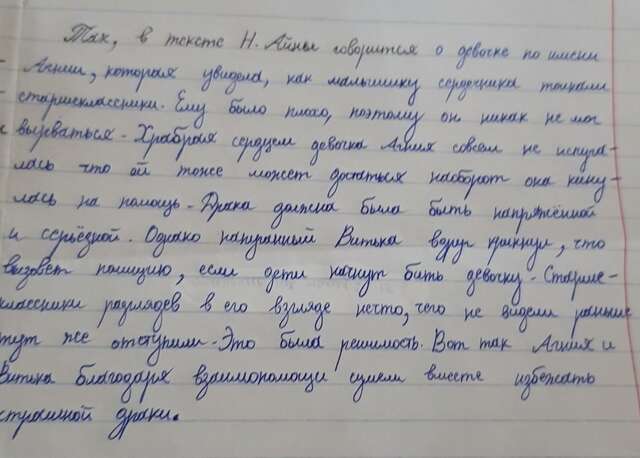 Так, в тексте Н. Айны говорится о девочке по имени
Агнии, которая увидела, как мальчишку сердечника толкали
старшеклассники. Ему было плохо, поэтому он никак не мог
вырваться - Храбрая сердцем девочка Агния совсем не испуга-
лась что ей тоже может достаться наоборот она кину-
лась на помощь - Драка должна была быть напряжённой
и серьёзной. Однако напуганный Витька вдруг крикнул, что
вызовет полицию, если дети начнут бить девочку - Старше-
классники разглядев в его взгляде нечто, чего не видели раньше
тут же отступили - Это была решимость. Вот так Агния и
Витька благодаря взаимопомощи сумели вместе избежать
страшной драки.